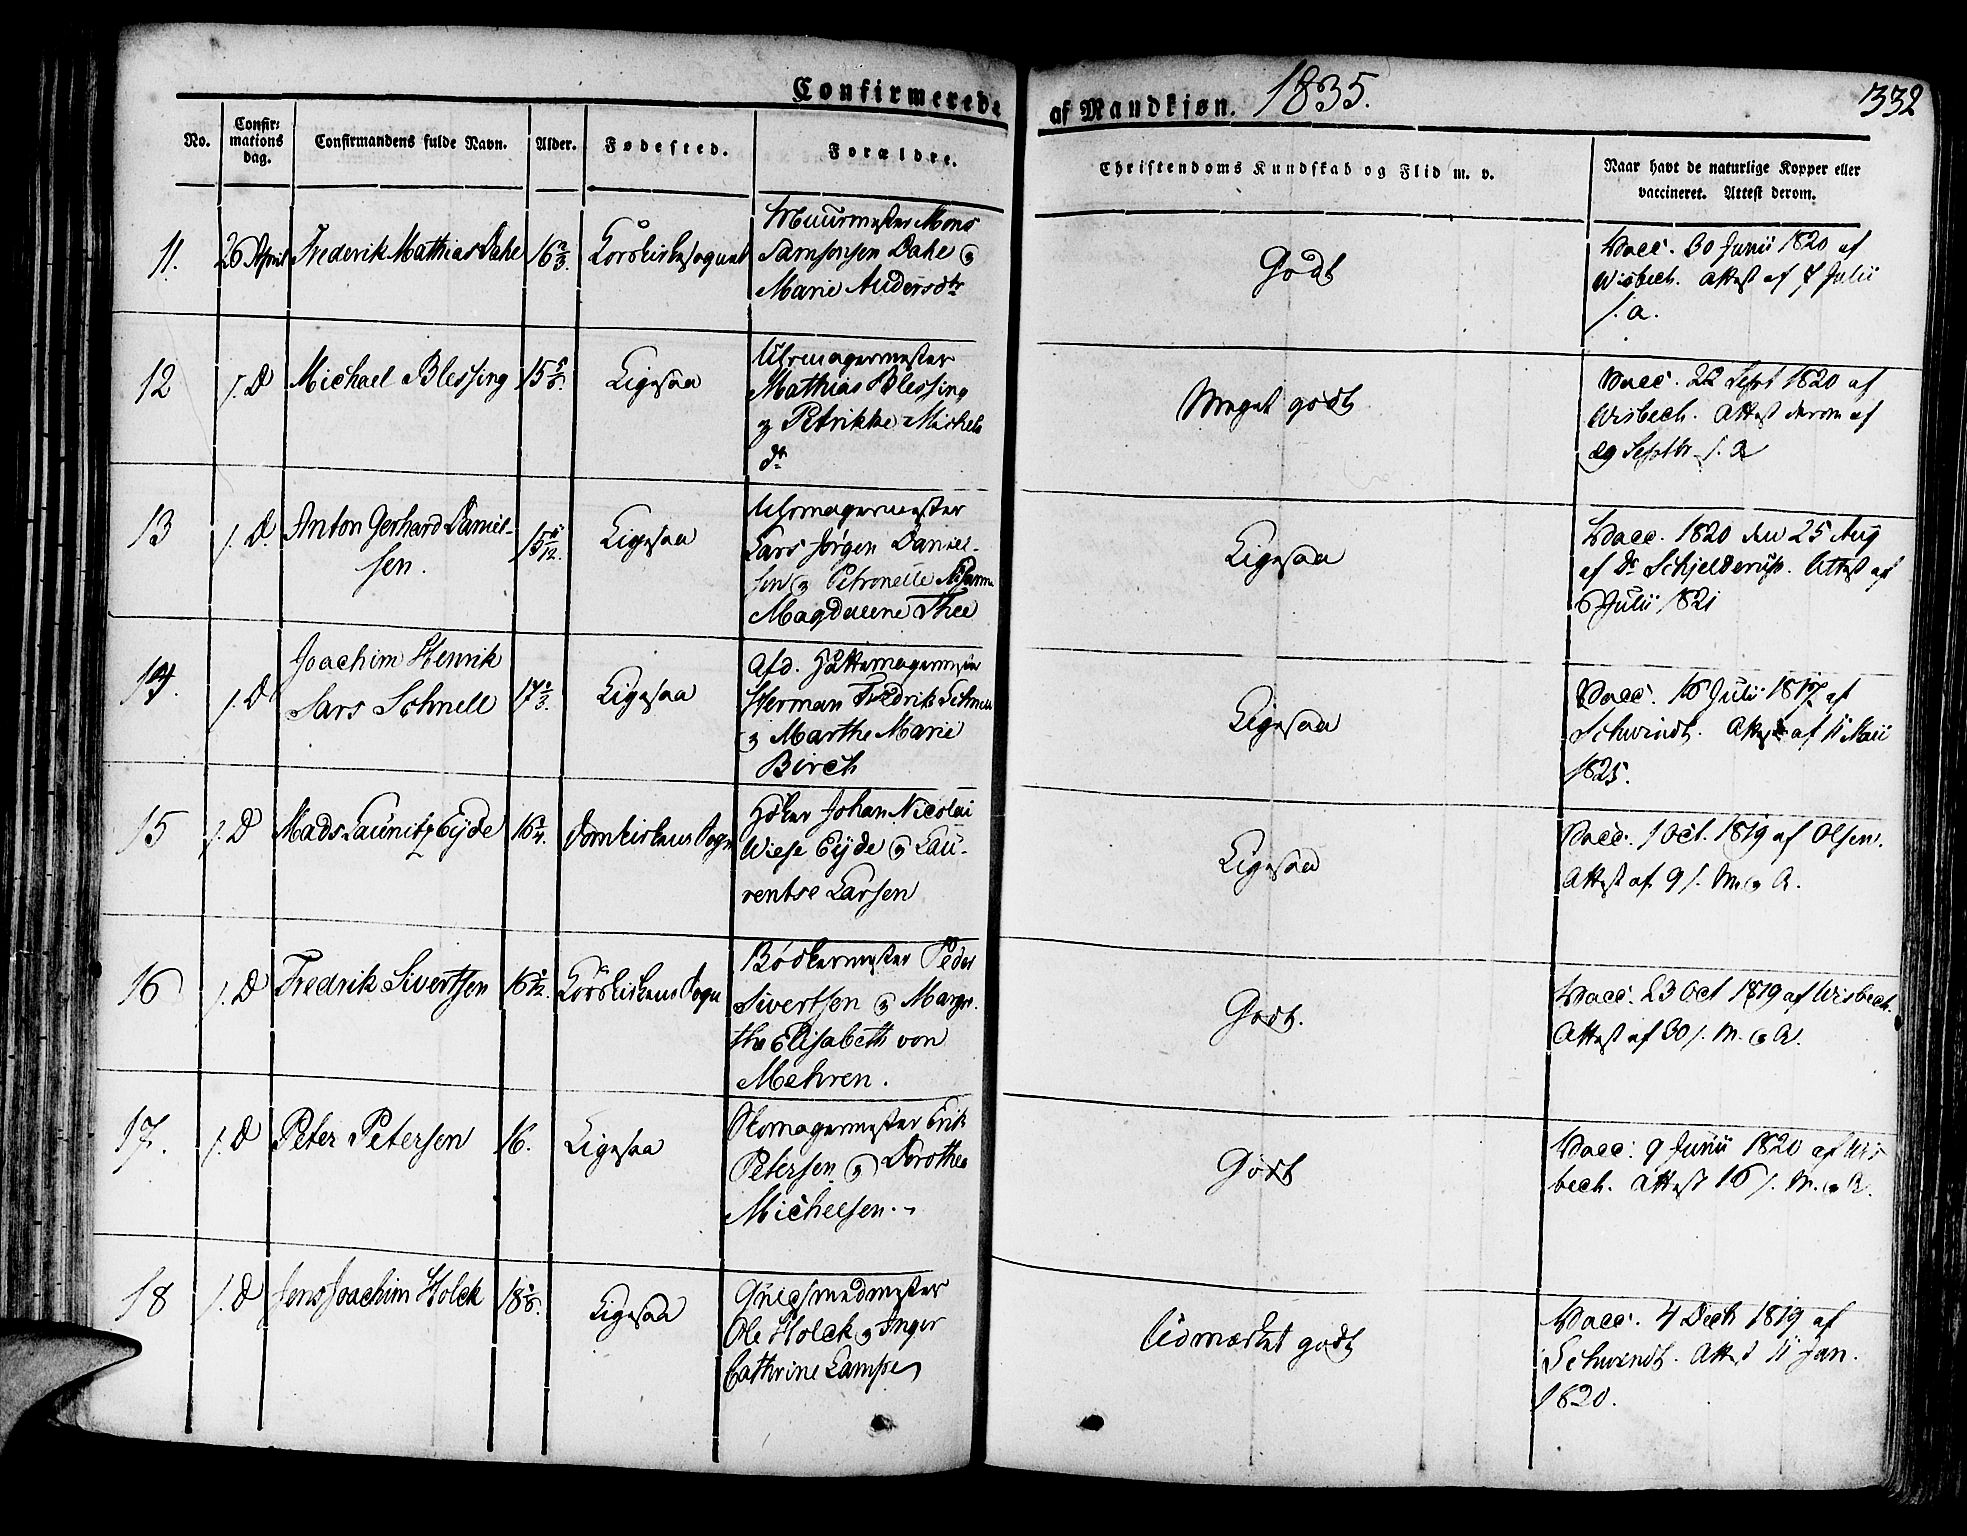 Confirmerede af Mandkjøn. 1835. 332
No. Confirmations dag. Confirmandens fulde Navn. Alder. Fødested. Forældre. Christendoms Kundskab og Flid m. v. Naar havt de naturlige Kopper eller vaccineret. Attest derom.
11. 26 April Frederik Mathias Dahe 16 2/3. Korskirkesognet
Muurmester Mons
Samsonsen Dahe og
Marie Andersdtr
Godt
Vacc. 30 Junii 1820 af
Wisbech. Attest af 7 Julii
s. a.
12 s. D Michael Blessing 15 5/6. Ligesaa
Uhrmagermester
Mathias Blessing
og Petrikke Mickels
dtr
Meget godt
Vacc. 22 Sept 1820 af
Wisbech. Attest derom af
29 Septbr s. A
13 s. D. Anton Gerhard Daniel-
sen. 15 11/12. Ligesaa
Uhrmagermester
Lars Jørgen Daniel-
sen og Petronelle
Magdalene Thee
Ligesaa
Vacc. 1820 den 25 Aug
af Dr Schjelderup. Attest af
6 Julii 1821
14. s. D Joachim Henrik
Lars Schnell 17 2/3. Ligesaa
Afd. Hattemagermester
Herman Fredrik Schnell
og Marthe Marie
Birch
Ligesaa
Vacc. 16 Julii 1817 af
Schwindt. Attest af 11 Maii
1825.
15 s. D Mads Launitz Eyde 16 1/4. Domkirkens Sogn
Høker Johan Nicolai
Wiese Eyde og Lau-
rentse Larsen
Ligesaa
Vacc. 1 Oct. 1819 af Olsen.
Attest af 9 s. M. og A.
16 s. D Fredrik Sivertsen 16 Korskirkens Sogn
Bødkermester Peder
Sivertsen og Margre
the Elisabeth von
Mehren.
Godt.
Vacc. 23 Oct 1819 af Wisbech.
Attest af 30 s. M. og A.
17. s. D Peter Petersen 16. Ligesaa
Skomagermester Erik
Petersen og Dorothea
Michelsen.
Godt
Vacc. 9 Junii 1820 af Wis
bech. Attest 16 s. M. og A.
18 s. D Jens Joachim Holck 18 1/6. Ligesaa
Guldsmedmester
Ole Holck og Inger
Cathrine Lampe
Udmærket godt
Vacc. 4 Decb 1819 af
Schwindt. Attest 11 Jan.
1820.